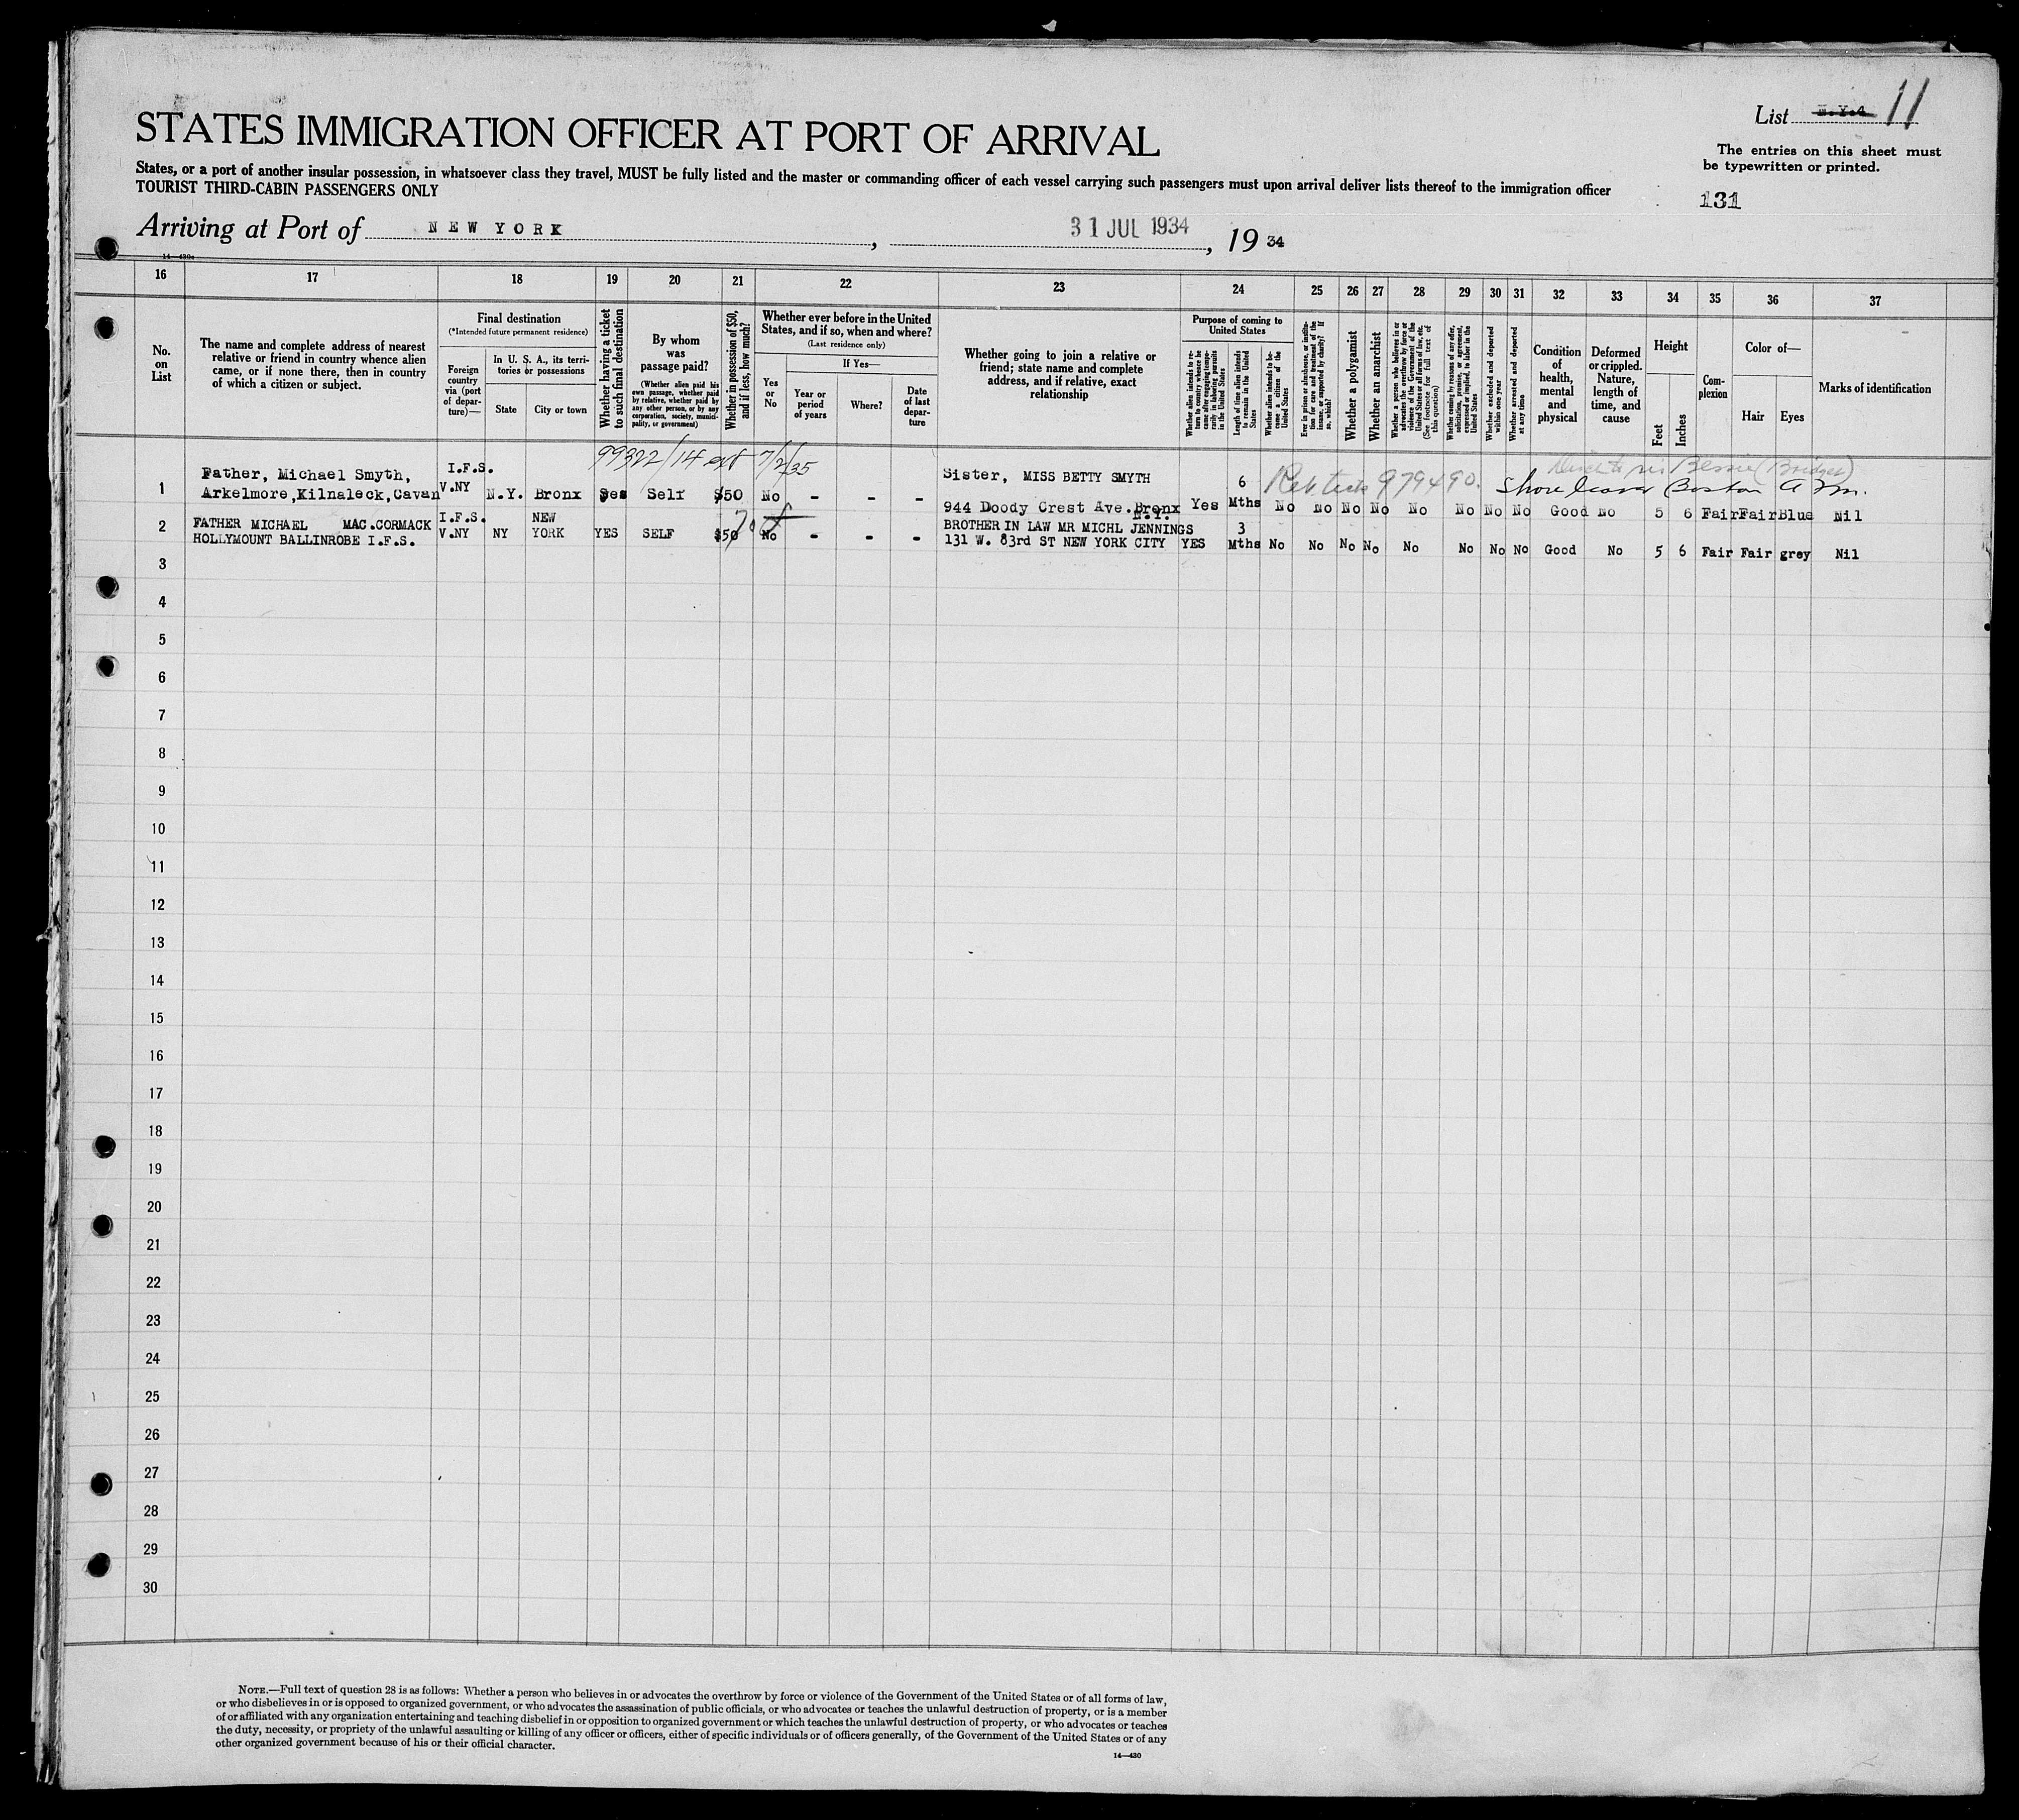 List N.Y.4 11
The entries on this sheet must
be typewritten or printed.
131
STATES IMMIGRATION OFFICER AT PORT OF ARRIVAL
States, or a port of another insular possession, in whatsoever class they travel, MUST be fully listed and the master or commanding officer of each vessel carrying such passengers must upon arrival deliver lists thereof to the immigration officer
TOURIST THIRD-CABIN PASSENGERS ONLY
Arriving at Port of NEW YORK, 31 JUL 1934, 19 34
14—430a
16 17 18 19 20 21 22 23 24 25 26 27 28 29 30 31 32 33 34 35 36 37
No. on List
The name and complete address of nearest relative or friend in country whence alien came, or if none there, then in country of which a citizen or subject.
Final destination
(*Intended future permanent residence)
Foreign country via (port of departure)—
In U. S. A., its territories or possessions
State
City or town
Whether having a ticket to such final destination
By whom was passage paid?
(Whether alien paid his own passage, whether paid by relative, whether paid by any other person, or by any corporation, society, municipality, or government)
Whether in possession of $50, and if less, how much?
Whether ever before in the United States, and if so, when and where?
(Last residence only)
Yes or No
If Yes—
Year or period of years
Where?
Date of last departure
Whether going to join a relative or friend; state name and complete address, and if relative, exact relationship
Purpose of coming to United States
Whether alien intends to return to country whence he came after engaging temporarily in laboring pursuits in the United States
Length of time alien intends to remain in the United States
Whether alien intends to become a citizen of the United States
Ever in prison or almshouse, or institution for care and treatment of the insane, or supported by charity? If so, which?
Whether a polygamist
Whether an anarchist
Whether a person who believes in or advocates the overthrow by force or violence of the Government of the United States or all forms of law, etc. (See footnote for full text of this question)
Whether coming by reason of any offer, solicitation, promise, or agreement, expressed or implied, to labor in the United States
Whether excluded and deported within one year
Whether arrested and deported at any time
Condition of health, mental and physical
Deformed or crippled. Nature, length of time, and cause
Height
Feet
Inches
Complexion
Color of—
Hair
Eyes
Marks of identification
99322/14 ext 7/2/35
979490.
Shore leave Boston
1 Father, Michael Smyth, I.F.S. Sister, MISS BETTY SMYTH 6
Arkelmore,Kilnaleck,Cavan V.NY N.Y. Bronx Yes Self $50 No - - - 944 Doody Crest Ave.Bronx N.Y. Yes Mths No No No No No No No No Good No 5 6 Fair Fair Blue Nil
2 FATHER MICHAEL MAC.CORMACK I.F.S. NEW 70 BROTHER IN LAW MR MICHL JENNINGS 3
HOLLYMOUNT BALLINROBE I.F.S. V.NY NY YORK YES SELF $50 No - - - 131 W. 83rd ST NEW YORK CITY YES Mths No No No No No No No No Good No 5 6 Fair Fair grey Nil
3
4
5
6
7
8
9
10
11
12
13
14
15
16
17
18
19
20
21
22
23
24
25
26
27
28
29
30
NOTE.—Full text of question 28 is as follows: Whether a person who believes in or advocates the overthrow by force or violence of the Government of the United States or of all forms of law,
or who disbelieves in or is opposed to organized government, or who advocates the assassination of public officials, or who advocates or teaches the unlawful destruction of property, or is a member
of or affiliated with any organization entertaining and teaching disbelief in or opposition to organized government or which teaches the unlawful destruction of property, or who advocates or teaches
the duty, necessity, or propriety of the unlawful assaulting or killing of any officer or officers, either of specific individuals or of officers generally, of the Government of the United States or of any
other organized government because of his or their official character.
14—430